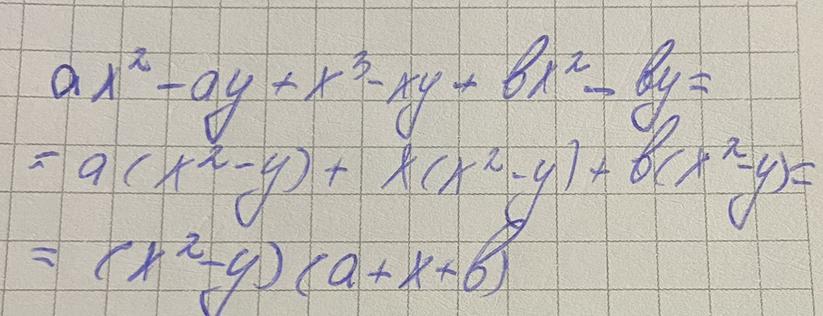 ax² - ay + x³ - xy + bx² - by =
= a(x² - y) + x(x² - y) + b(x² - y) =
= (x² - y)(a + x + b)